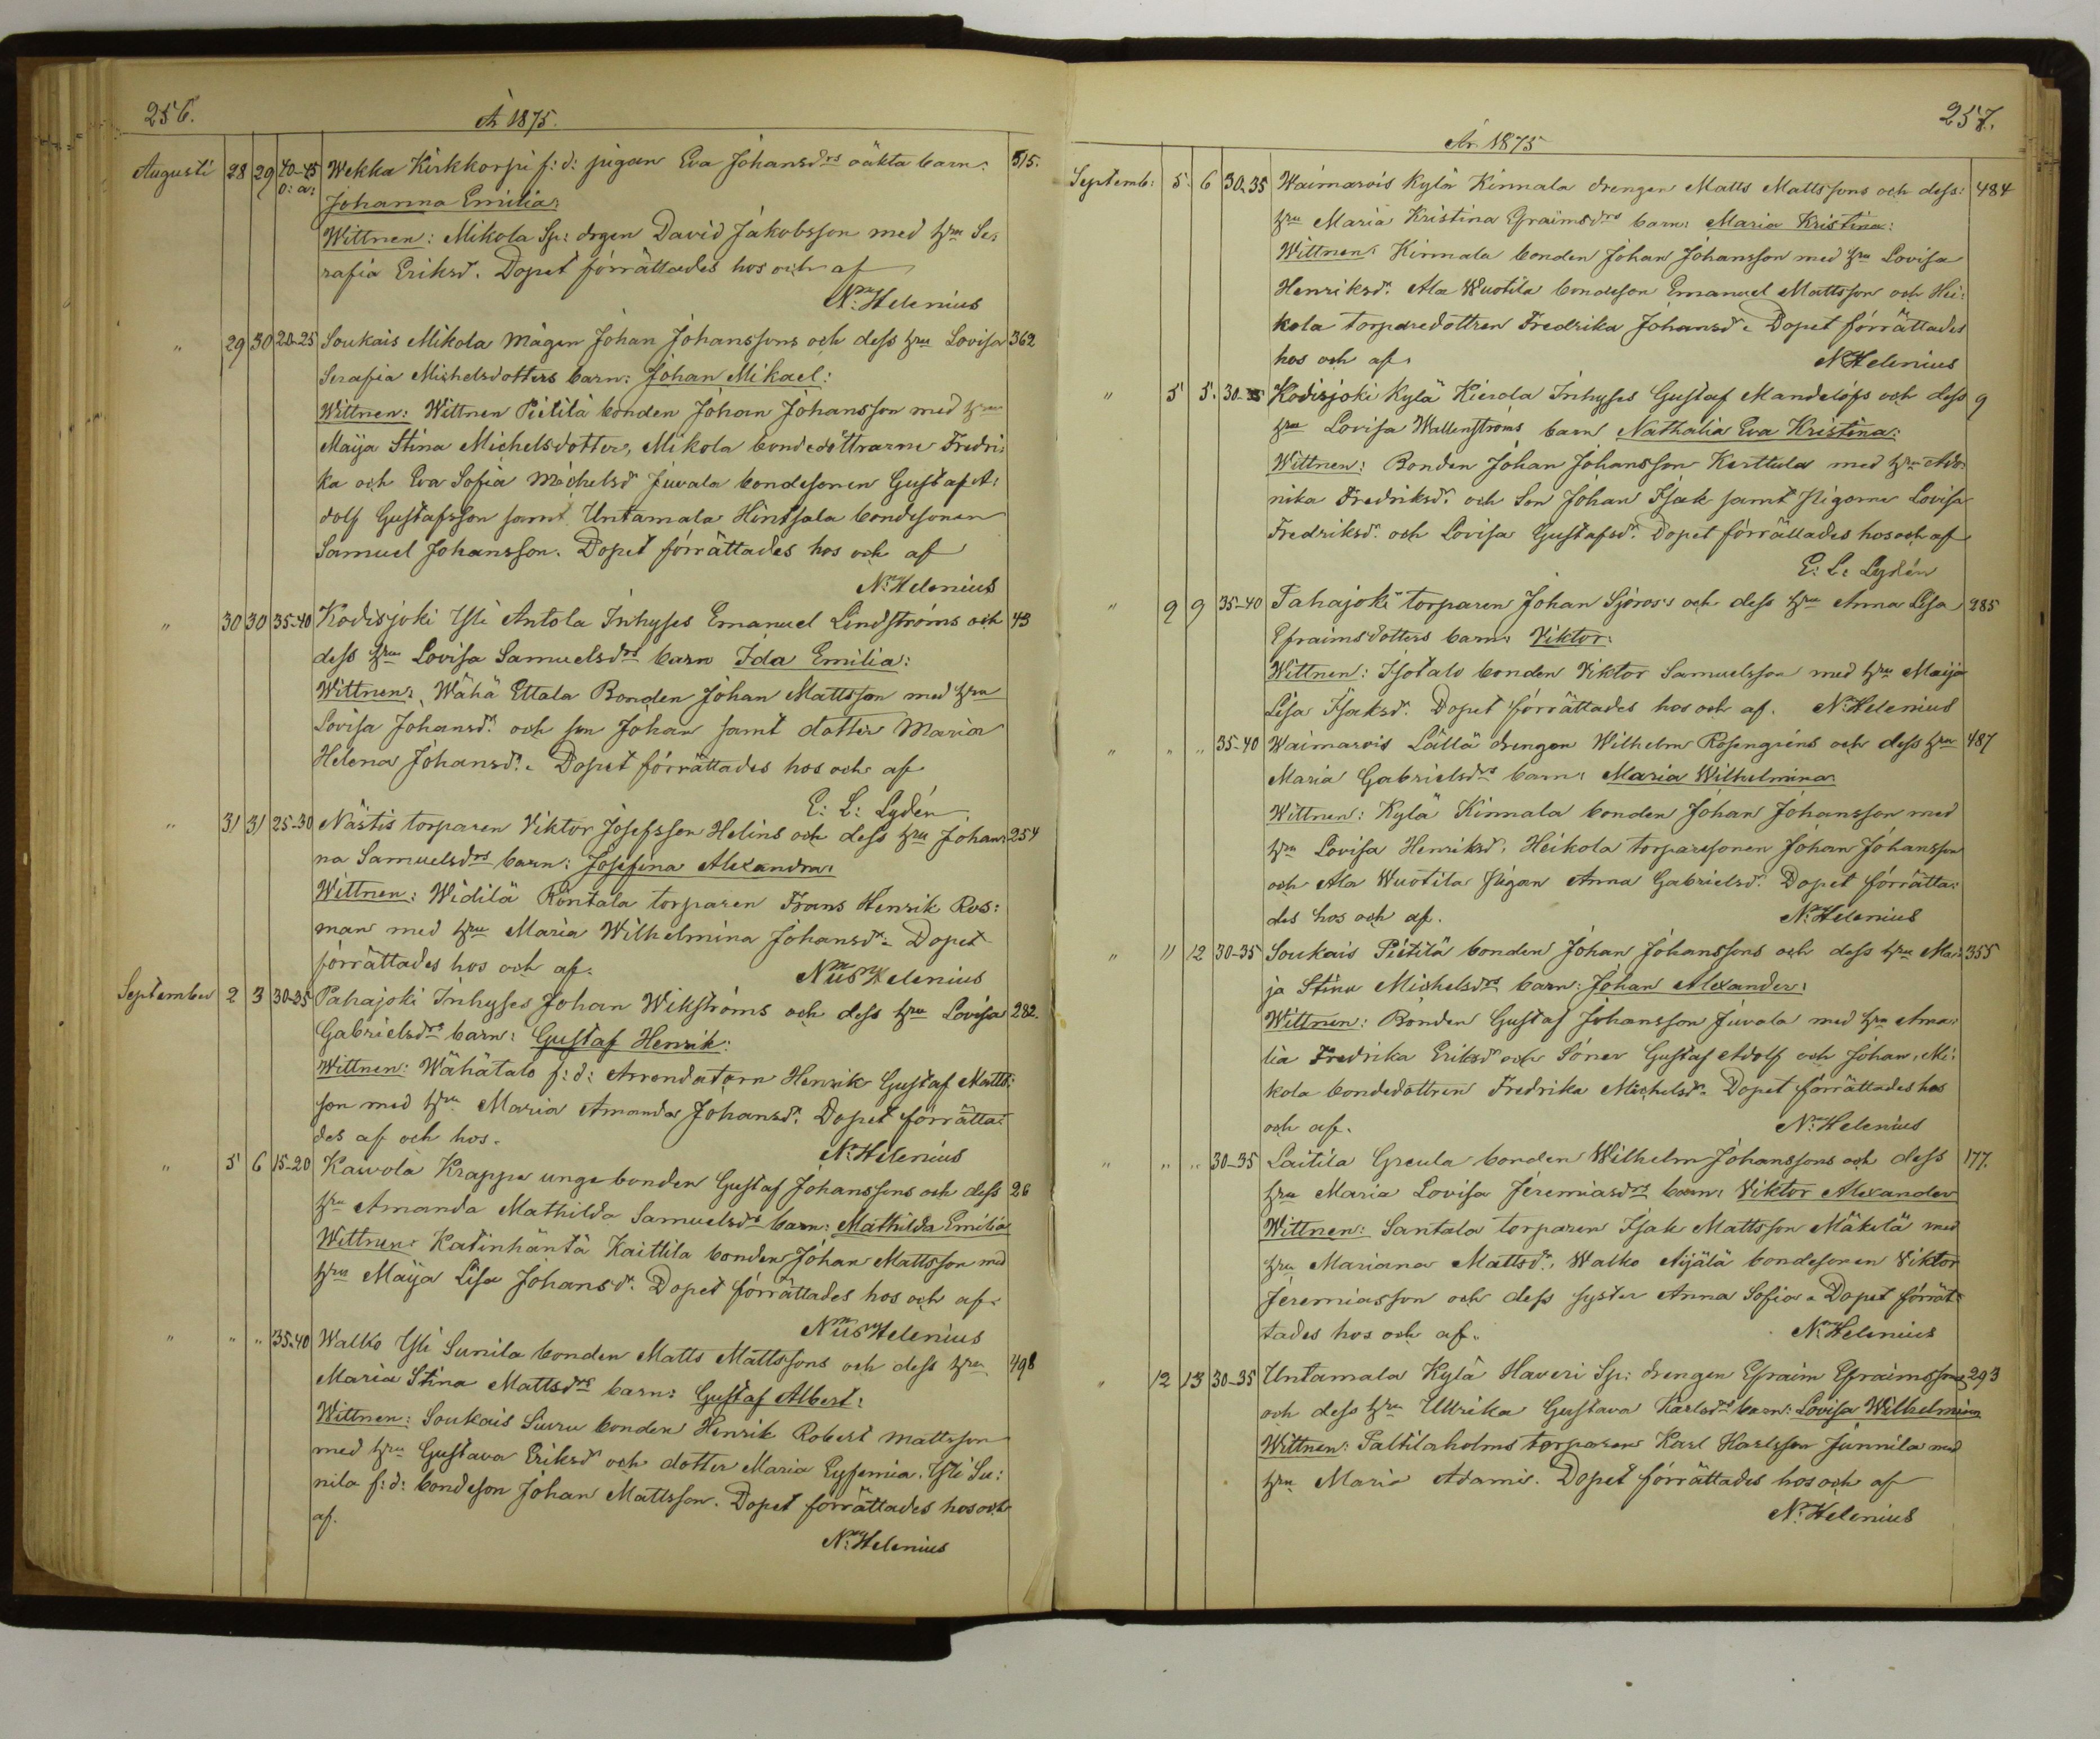 256.
År 1875.
Augusti 28 29 40-45 Wekka Kirkkorpi f:d: pigan Eva Johansdrs oäkta barn: 515.
o: ä: Johanna Emilia:
Wittnen: Mikola Sp: drgen David Jakobsson med hru Se:
rafia Eriksd. Dopet förrättades hos och af
N. Helenius
" 29 30 20-25 Soukais Mikola mågen Johan Johanssons och dess hru Lovisa 362
Serafia Michelsdotters barn: Johan Mikael:
Wittnen: Wittnen Pietilä bonden Johan Johansson med hru
Maija Stina Michelsdotter, Mikola bondedöttrarne Fredri:
ka och Eva Sofia Michelsd Juvala bondesonen Gustaf A:
dolf Gustafsson samt Untamala Hintsala bondesonen
Samuel Johansson. Dopet förrättades hos och af
N. Helenius
" 30 30 35-40 Kodisjoki Yli Antola Inhyses Emanuel Lindströms och 43
dess hru Lovisa Samuelsdrs barn Ida Emilia:
Wittnen: Wähä Ettala Bonden Johan Mattsson med hru
Lovisa Johansdr och son Johan samt dotter Maria
Helena Johansdr. Dopet förrättades hos och af
E: L: Lydén
" 31 31 25-30 Nästis torparen Viktor Josefsson Helins och dess hru Johan: 254
na Samuelsdrs barn: Josefina Alexandra:
Wittnen: Widilä Röntala torparen Frans Henrik Ros:
man med hru Maria Wilhelmina Johansdr. Dopet
förrättades hos och af.
Nus Helenius
September 2 3 30-35 Pahajoki Inhyses Johan Wikströms och dess hru Lovisa 282.
Gabrielsdrs barn: Gustaf Henrik:
Wittnen: Wähätalo f:d: Arrendatorn Henrik Gustaf Matts:
son med hru Maria Amanda Johansdr. Dopet förrätta:
des af och hos.
N. Helenius
" 5 6 15-20 Kawola Krappe unge bonden Gustaf Johanssons och dess 26
hru Amanda Mathilda Samuelsdrs barn: Mathilda Emilia
Wittnen: Katinhäntä Kaittila bonden Johan Mattsson med
hru Maija Lisa Johansdr. Dopet förrättades hos och af.
Nus Helenius
" " " 35-40 Walko Yli Sunila bonden Matts Mattssons och dess hru 498
Maria Stina Mattsdrs barn: Gustaf Albert:
Wittnen: Soukais Suuru bonden Henrik Robert Mattsson
med hru Gustava Eriksdr och dotter Maria Eufemia. Yli Su:
nila f:d: bondeson Johan Mattsson. Dopet förrättades hos och
af.
N. Helenius
257.
År 1875
Septemb: 5 6 30-35 Waimarois Kylä Kinnala drengen Matts Mattssons och dess: 484
hru Maria Kristina Efraimsdrs barn: Maria Kristina:
Wittnen: Kinnala bonden Johan Johansson med hru Lovisa
Henriksdr. Ala Wuotila bondeson Emanuel Mattsson och Hei:
kola torparedottren Fredrika Johansdr. Dopet förrättades
hos och af.
N. Helenius
" 5 5. 30- Kodisjoki Kylä Kierola Inhyses Gustaf Mandelöfs och dess 9
hru Lovisa Wallenströms barn Nathalia Eva Kristina:
Wittnen: Bonden Johan Johansson Kerttula med hru Ado:
nika Fredriksdr. och Son Johan Isak samt Pigorna Lovisa
Fredriksdr. och Lovisa Gustafsdr. Dopet förrättades hos och af
E: L: Lydén
" 9 9 35-40 Pahajoki torparen Johan Sjöros's och dess hru Anna Lisa 285
Efraimsdotters barn: Viktor:
Wittnen: Isotalo bonden Viktor Samuelsson med hru Maija
Lisa Isaksdr. Dopet förrättades hos och af. N. Helenius
" " " 35-40 Waimarois Lällä drengen Wilhelm Rosengréns och dess hru 487
Maria Gabrielsdrs barn: Maria Wilhelmina:
Wittnen: Kylä Kinnala bonden Johan Johansson med
hru Lovisa Henriksd. Heikola torparesonen Johan Johansson
och Ala Wuotila Pigan Anna Gabrielsd. Dopet förrätta:
des hos och af.
N. Helenius
" 11 12 30-35 Soukais Pietilä bonden Johan Johanssons och dess hru Mai: 355
ja Stina Michelsdrs barn: Johan Alexander:
Wittnen: Bonden Gustaf Johansson Juvala med hru Ama:
lia Fredrika Eriksdr och Söner Gustaf Adolf och Johan, Mi:
kola bondedottren Fredrika Michelsdr. Dopet förrättades hos
och af.
N. Helenius
" " " 30-35 Laitila Greula bonden Wilhelm Johanssons och dess 177.
hru Maria Lovisa Jeremiasdrs barn: Viktor Alexander
Wittnen: Santala torparen Isak Mattsson Mäkelä med
hru Mariana Mattsdr. Walko Äijälä bondesonen Viktor
Jeremiasson och dess syster Anna Sofia. Dopet förrät:
tades hos och af.
N. Helenius
" 12 13 30-35 Untamala Kylä Haveri Sp: drengen Efraim Efraimssons 293
och dess hru Ullrika Gustava Karlsdrs barn: Lovisa Wilhelmina
Wittnen: Paltilaholms torparen Karl Karlsson Junnila med
hru Maria Adamsd. Dopet förrättades hos och af
N. Helenius